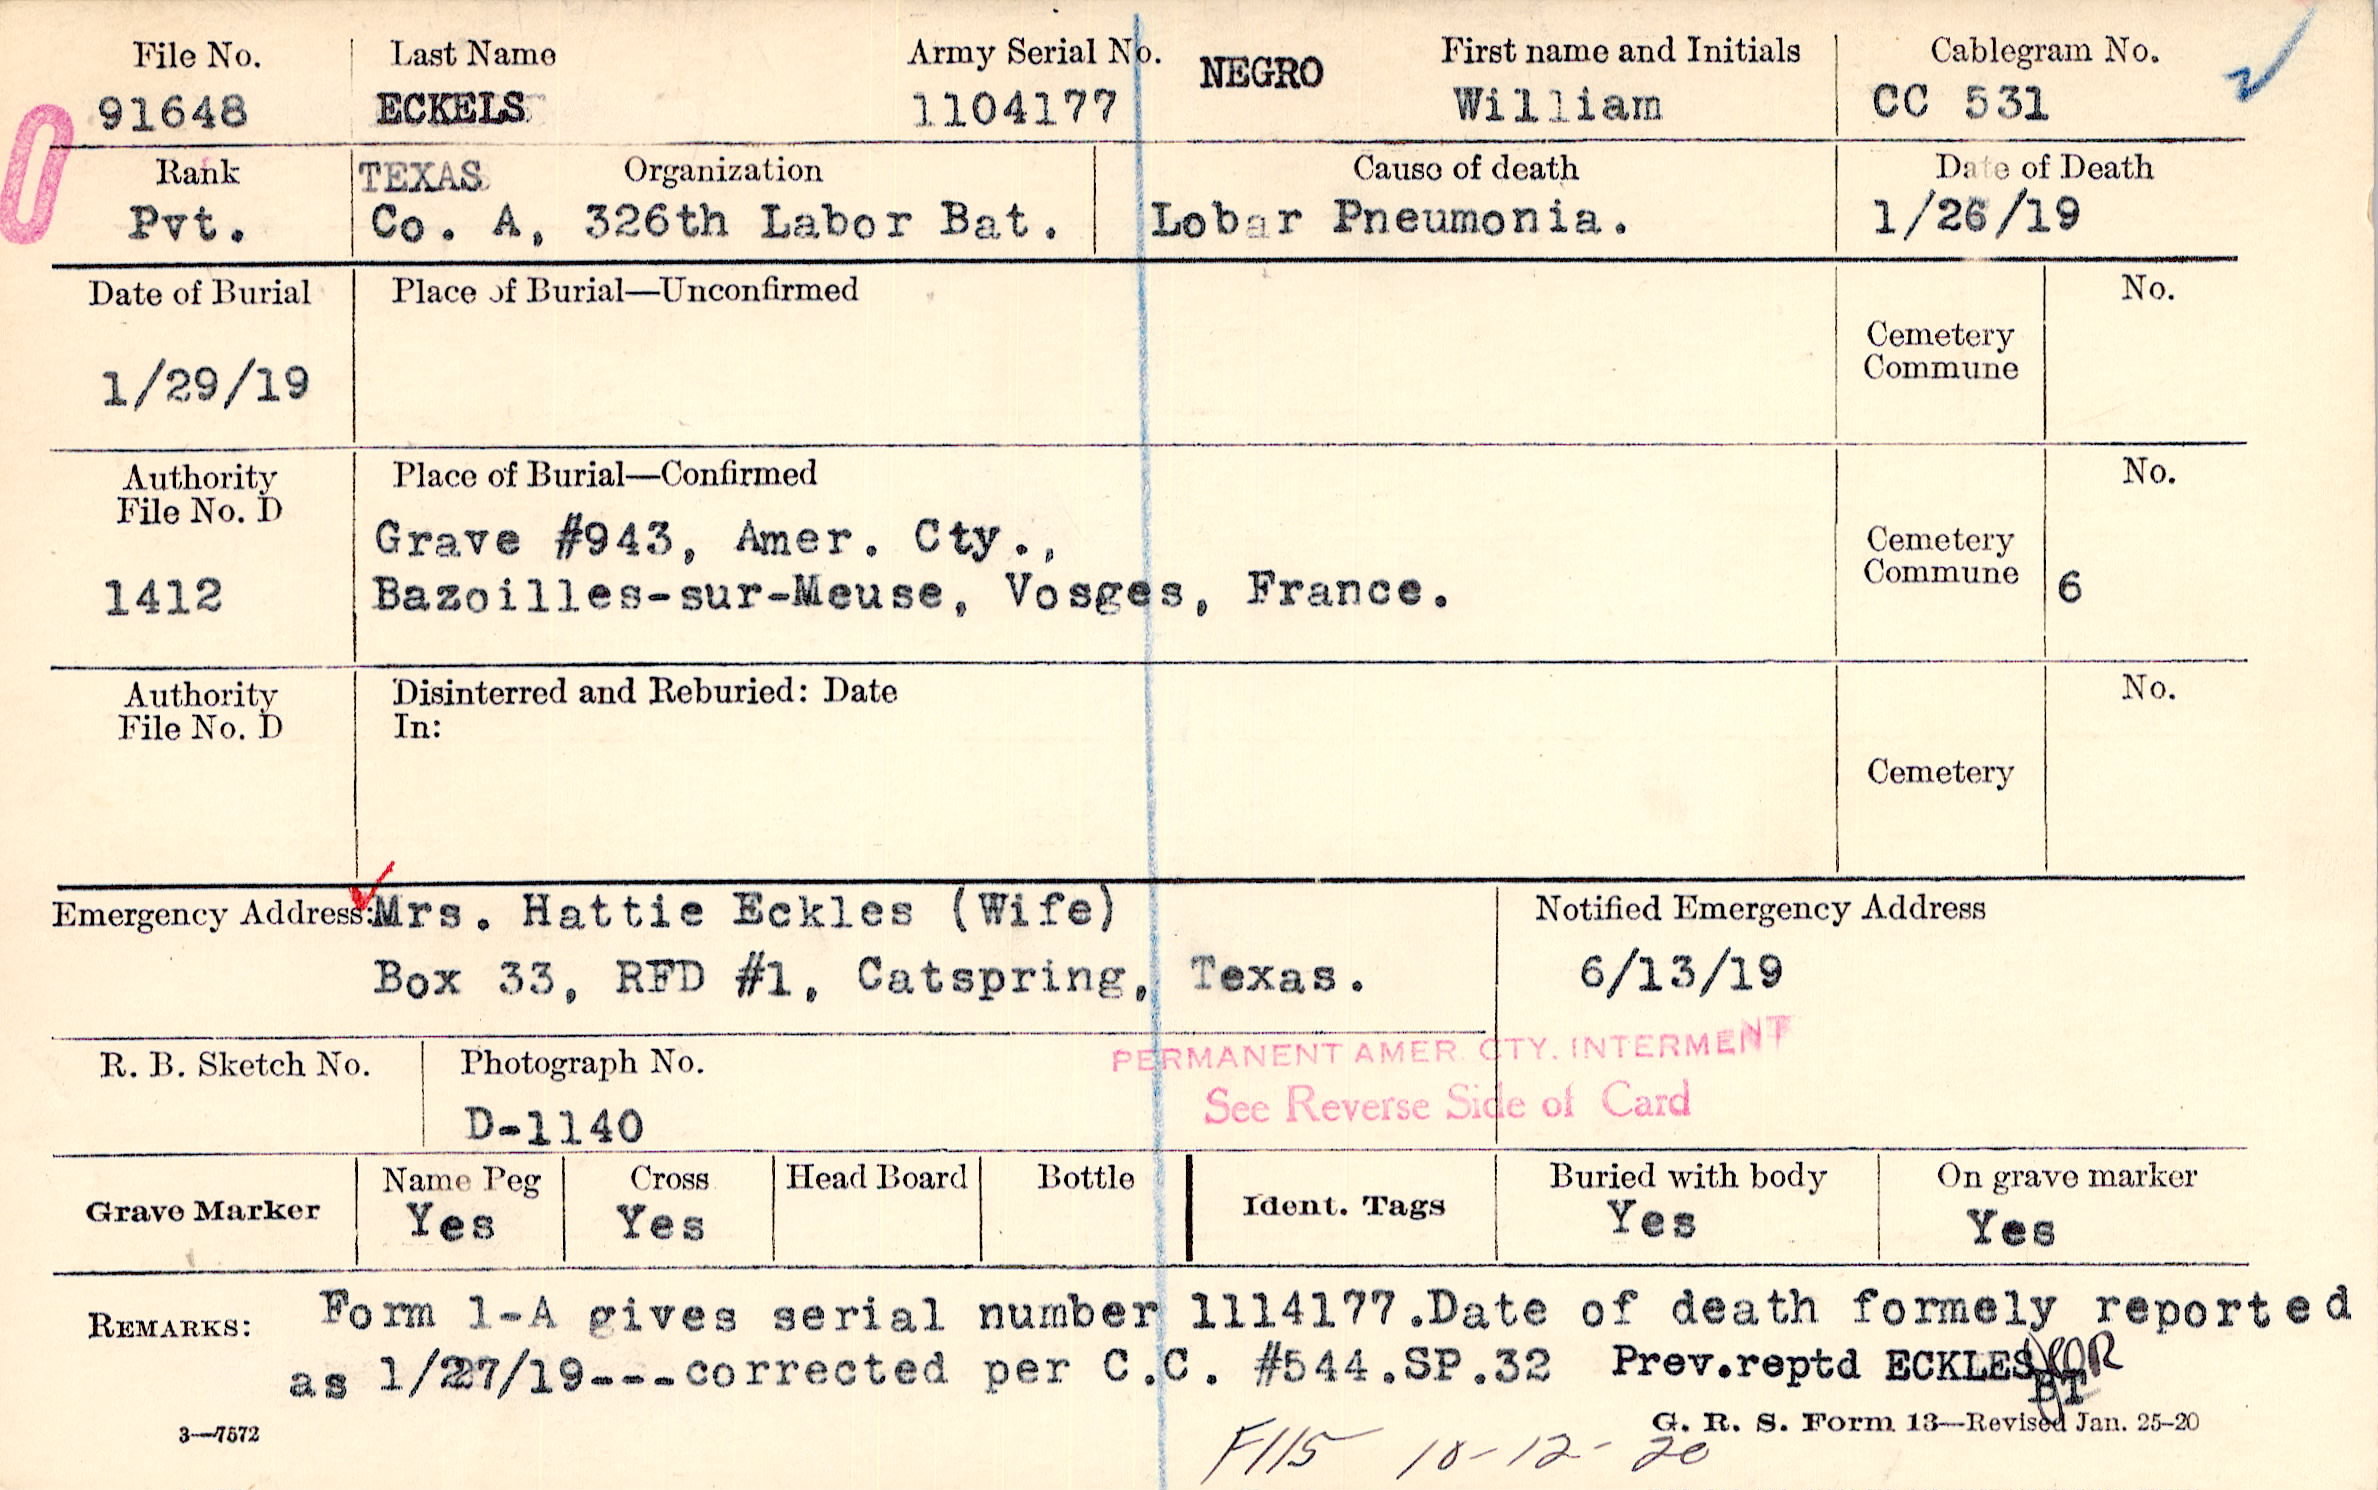 File No. Last Name Army Serial No. NEGRO First name and Initials Cablegram No.
91648 ECKELS 1104177 William CC 531
Rank TEXAS Organization Cause of death Date of Death
Pvt. Co. A, 326th Labor Bat. Lobar Pneumonia. 1/26/19
Date of Burial Place of Burial—Unconfirmed No.
Cemetery
Commune
1/29/19
Authority Place of Burial—Confirmed No.
File No. D
Grave #943, Amer. Cty., Cemetery
1412 Bazoilles-sur-Meuse, Vosges, France. Commune 6
Authority Disinterred and Reburied: Date No.
File No. D In:
Cemetery
Emergency Address: Mrs. Hattie Eckles (Wife) Notified Emergency Address
Box 33, RFD #1, Catspring, Texas. 6/13/19
PERMANENT AMER. CTY. INTERMENT
R. B. Sketch No. Photograph No.
See Reverse Side of Card
D-1140
Grave Marker Name Peg Cross Head Board Bottle Ident. Tags Buried with body On grave marker
Yes Yes Yes Yes
REMARKS: Form 1-A gives serial number 1114177.Date of death formely reported
as 1/27/19---corrected per C.C. #544.SP.32 Prev.reptd ECKLES
BT
3—7572 G. R. S. Form 13—Revised Jan. 25-20
F115 10-12-20